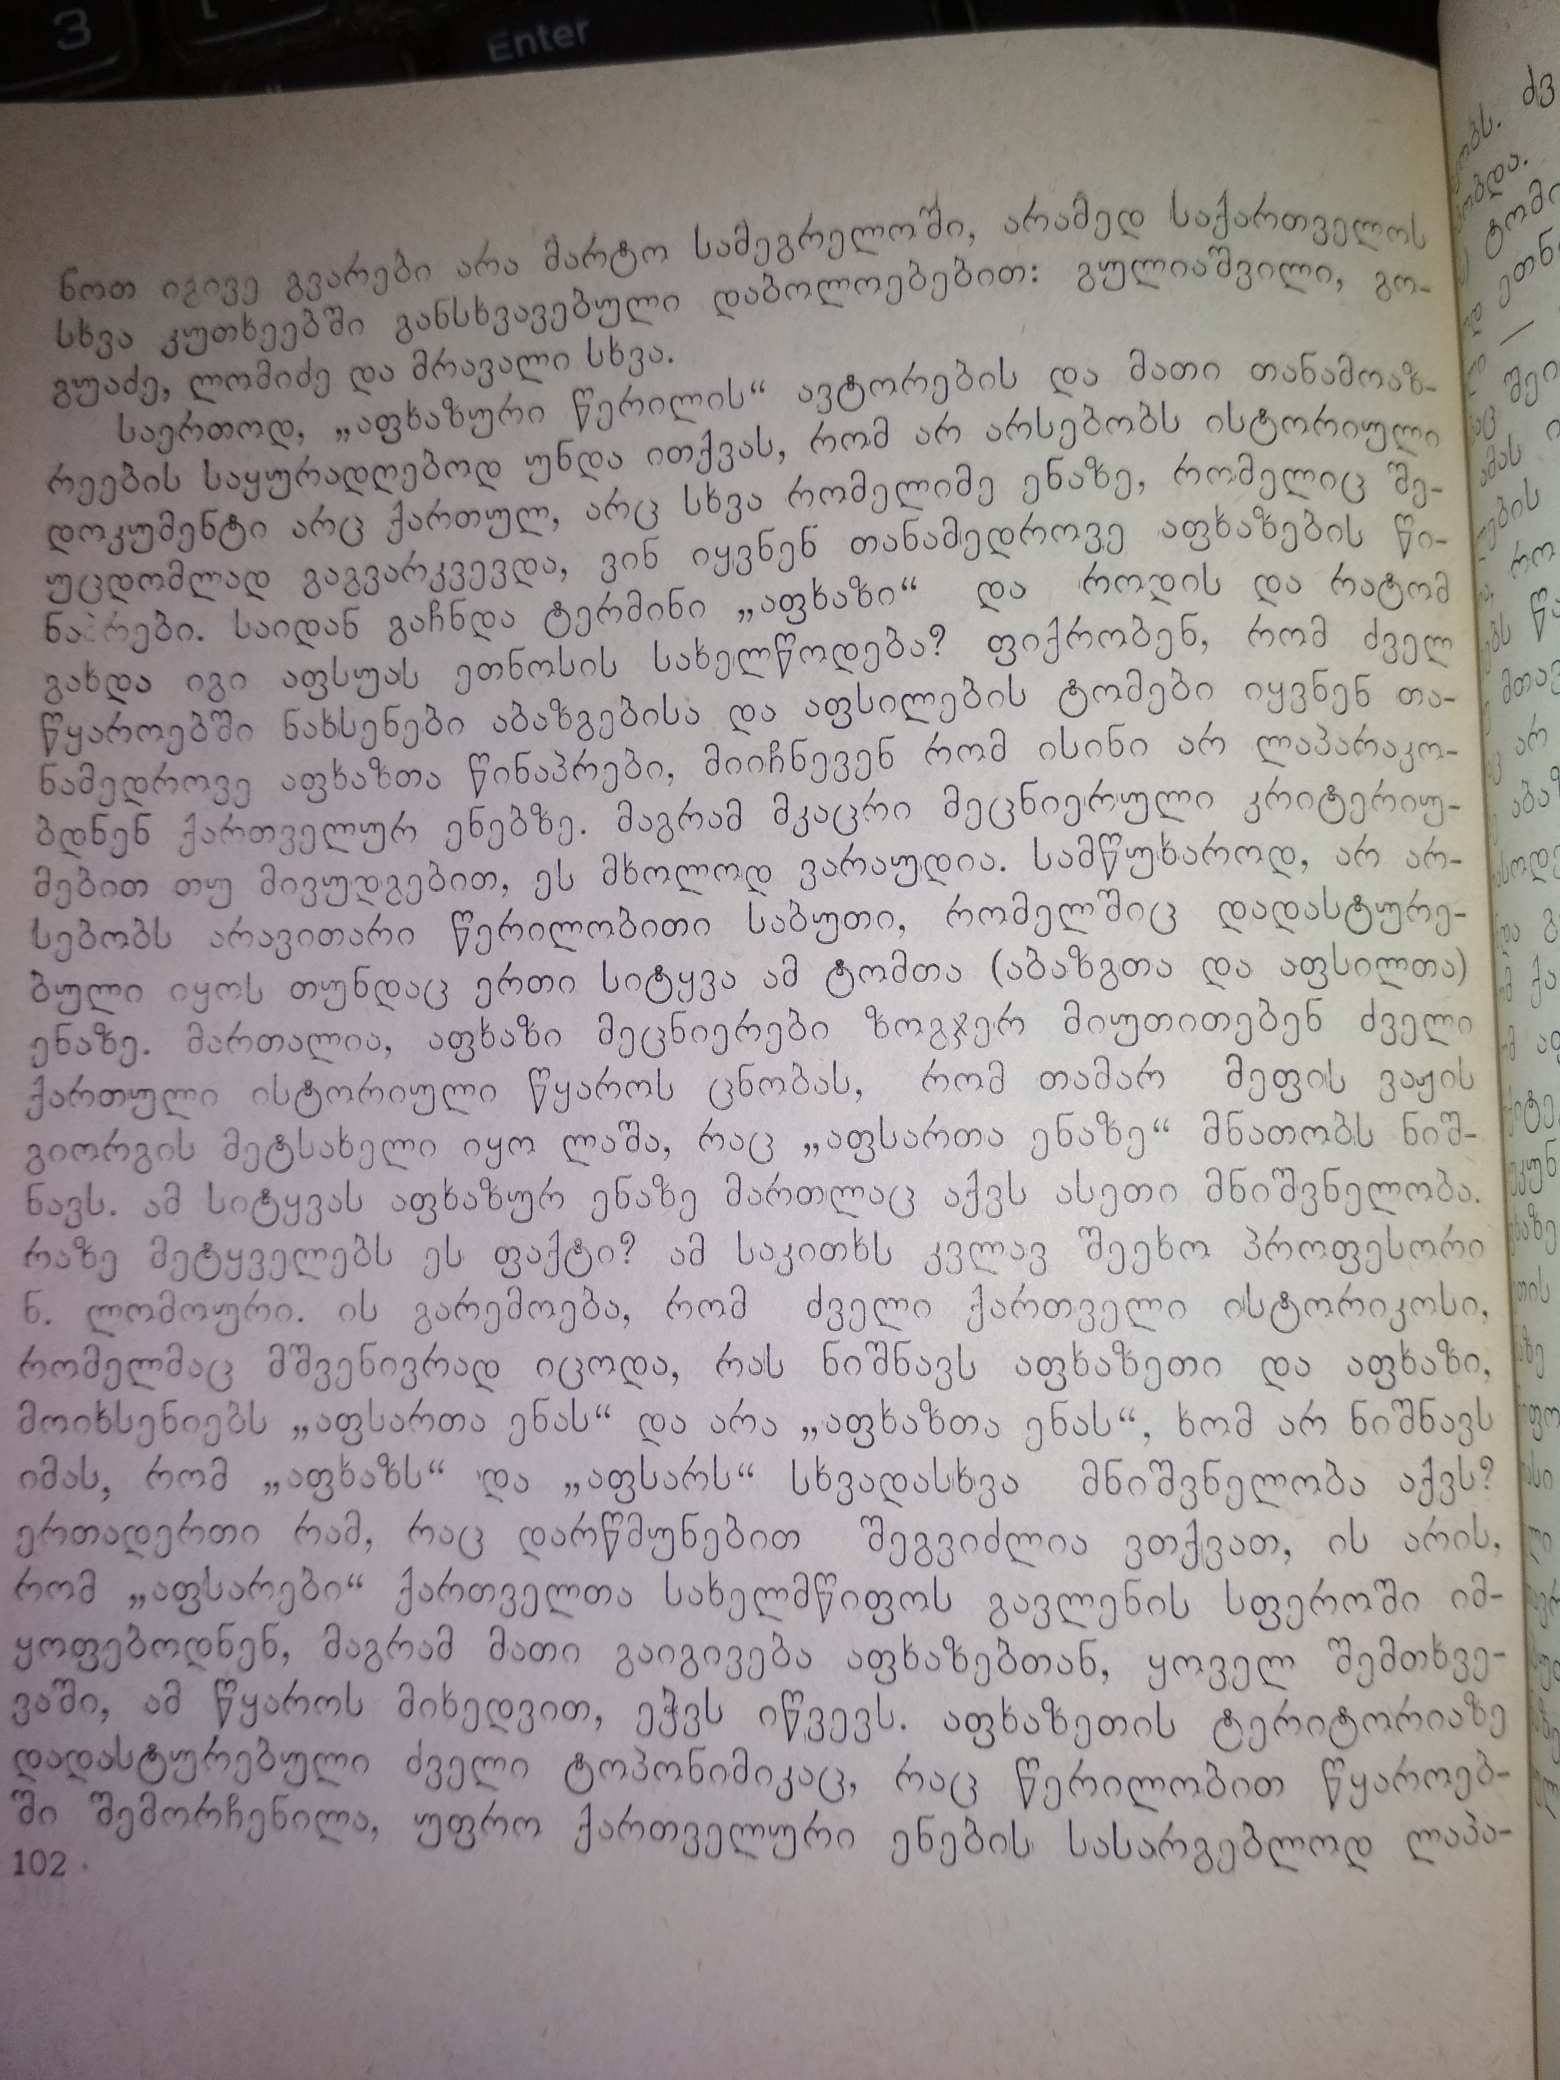 3
Enter
ნოთ იგივე გვარები არა მარტო სამეგრელოში, არამედ საქართველოს
სხვა კუთხეებში განსხვავებული დაბოლოებებით: გულიაშვილი, გო-
გუაძე, ლომიძე და მრავალი სხვა.
საერთოდ, „აფხაზური წერილის“ ავტორების და მათი თანამოაზ-
რეების საყურადღებოდ უნდა ითქვას, რომ არ არსებობს ისტორიული
დოკუმენტი არც ქართულ, არც სხვა რომელიმე ენაზე, რომელიც შე-
უცდომლად გაგვარკვევდა, ვინ იყვნენ თანამედროვე აფხაზების წი-
ნაპრები. საიდან გაჩნდა ტერმინი „აფხაზი“ და როდის და რატომ
გახდა იგი აფსუას ეთნოსის სახელწოდება? ფიქრობენ, რომ ძველ
წყაროებში ნახსენები აბაზგებისა და აფსილების ტომები იყვნენ თა-
ნამედროვე აფხაზთა წინაპრები, მიიჩნევენ რომ ისინი არ ლაპარაკო-
ბდნენ ქართველურ ენებზე. მაგრამ მკაცრი მეცნიერული კრიტერიუ-
მებით თუ მივუდგებით, ეს მხოლოდ ვარაუდია. სამწუხაროდ, არ არ-
სებობს არავითარი წერილობითი საბუთი, რომელშიც დადასტურე-
ბული იყოს თუნდაც ერთი სიტყვა ამ ტომთა (აბაზგთა და აფსილთა)
ენაზე. მართალია, აფხაზი მეცნიერები ზოგჯერ მიუთითებენ ძველი
ქართული ისტორიული წყაროს ცნობას, რომ თამარ მეფის ვაჟის
გიორგის მეტსახელი იყო ლაშა, რაც „აფსართა ენაზე“ მნათობს ნიშ-
ნავს. ამ სიტყვას აფხაზურ ენაზე მართლაც აქვს ასეთი მნიშვნელობა.
რაზე მეტყველებს ეს ფაქტი? ამ საკითხს კვლავ შეეხო პროფესორი
ნ. ლომოური. ის გარემოება, რომ ძველი ქართველი ისტორიკოსი,
რომელმაც მშვენივრად იცოდა, რას ნიშნავს აფხაზეთი და აფხაზი,
მოიხსენიებს „აფსართა ენას“ და არა „აფხაზთა ენას“, ხომ არ ნიშნავს
იმას, რომ „აფხაზს“ და „აფსარს“ სხვადასხვა მნიშვნელობა აქვს?
ერთადერთი რამ, რაც დარწმუნებით შეგვიძლია ვთქვათ, ის არის,
რომ „აფსარები“ ქართველთა სახელმწიფოს გავლენის სფეროში იმ-
ყოფებოდნენ, მაგრამ მათი გაიგივება აფხაზებთან, ყოველ შემთხვე-
ვაში, ამ წყაროს მიხედვით, ეჭვს იწვევს. აფხაზეთის ტერიტორიაზე
დადასტურებული ძველი ტოპონიმიკაც, რაც წერილობით წყაროებ-
ში შემორჩენილა, უფრო ქართველური ენების სასარგებლოდ ლაპა-
102